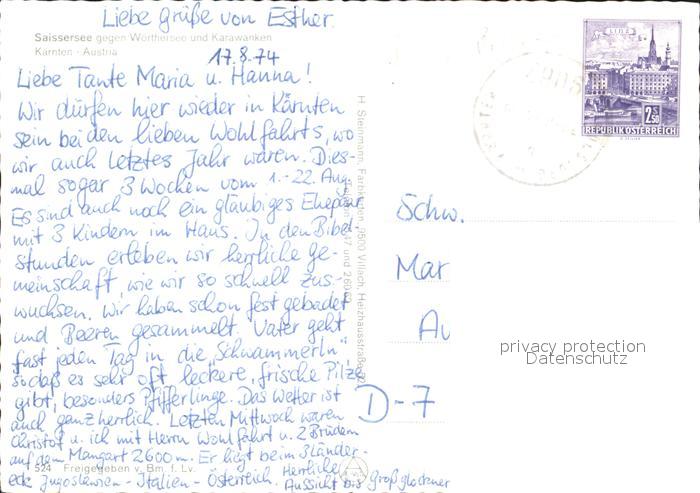 Liebe Grüße von Esther.
Saissersee gegen Wörthersee und Karawanken
Kärnten - Austria
17.8.74
Liebe Tante Maria u. Hanna!
Wir dürfen hier wieder in Kärnten
sein bei den lieben Wohlfahrts, wo
wir auch letztes Jahr waren. Dies-
mal sogar 3 Wochen vom 1.-22. Aug.
Es sind auch noch ein gläubiges Ehepaar
mit 3 Kindern im Haus. In den Bibel-
stunden erleben wir herrliche Ge-
meinschaft, wie wir so schnell zus.
wuchsen. Wir haben schon fest gebadet
und Beeren gesammelt. Vater geht
fast jeden Tag in die "Schwammerln"
sodaß es sehr oft leckere, frische Pilze
gibt, besonders Pfifferlinge. Das Wetter ist
auch ganz herrlich. Letzten Mittwoch waren
Christof u. ich mit Herrn Wohlfahrt u. 2 Brüdern
auf dem Mangart 2600 m. Er liegt beim 3 Länder-
eck Jugoslawien - Italien - Österreich. Herrliche
Aussicht bis Großglockner
524 Freigegeben v. Bm. f. Lv.
H. Steinmann, Farbkarten, 9500 Villach, Heizhausstraße
LINZ
2.50
REPUBLIK ÖSTERREICH
Schw.
Mar
Au
D-7
privacy protection
Datenschutz